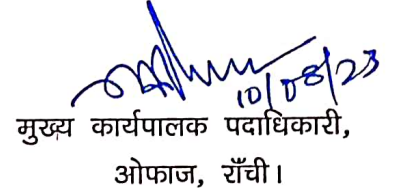 10/08/23
मुख्य कार्यपालक पदाधिकारी,
ओफाज, राँची।